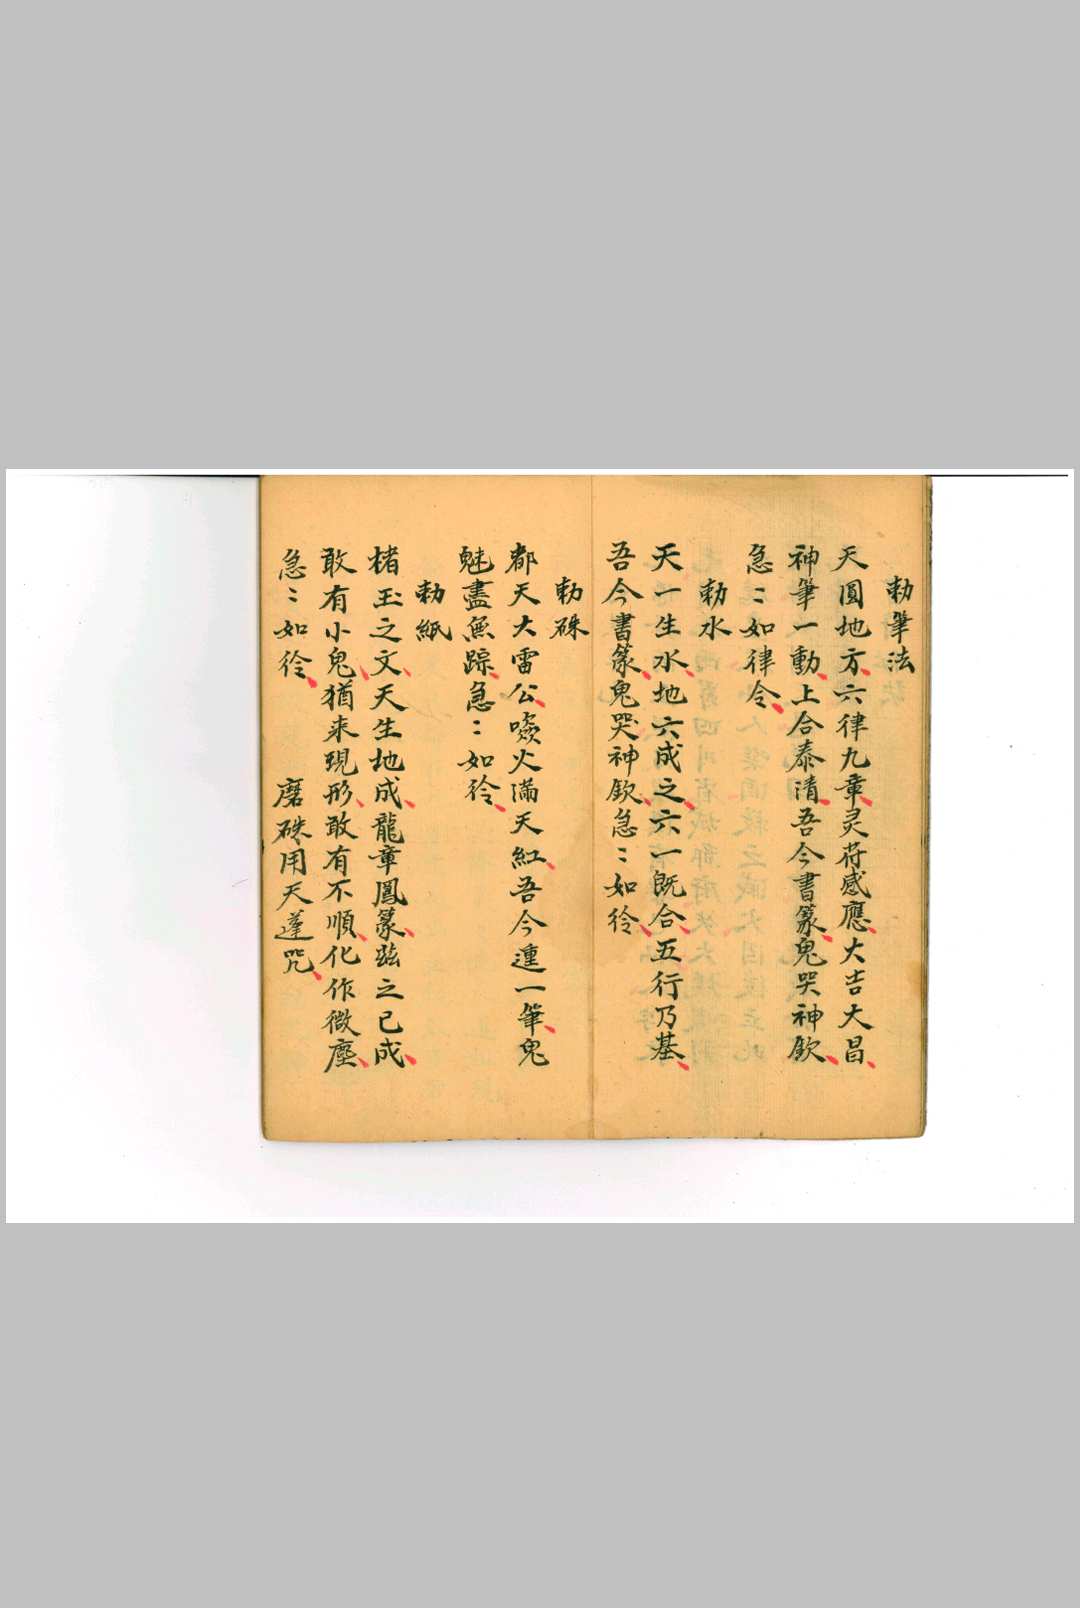 勅筆法
天圓地方六律九章灵苻感應大吉大昌
神筆一動上合泰清吾今書篆鬼哭神欽
急〻如律令
勅水
天一生水地六成之六一既合五行乃基
吾今書篆鬼哭神欽急〻如彾
勅硃
都天大雷公噞火滿天紅吾今運一筆鬼
魅盡無踪急〻如彾
勅紙
楮玉之文天生地成龍章鳳篆兹之已成
敢有小鬼猶来現形敢有不順化作微塵
急〻如彾 磨硃用天蓬咒